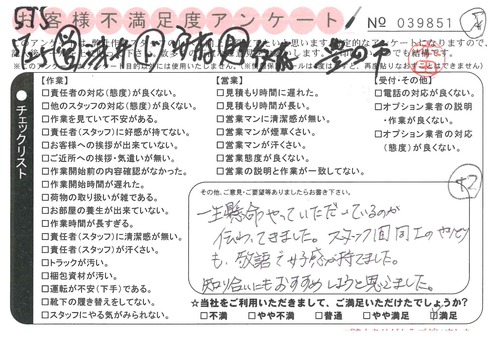 お客様不満足度アンケート
No 039851
チェックリスト
【作業】
□責任者の対応(態度)が良くない。
□他のスタッフの対応(態度)が良くない。
□作業を見ていて不安がある。
□責任者(スタッフ)に好感が持てない。
□お客様への挨拶が出来ていない。
□ご近所への挨拶・気遣いが無い。
□作業開始前の内容確認がなかった。
□作業開始時間が遅れた。
□荷物の取り扱いが雑である。
□お部屋の養生が出来ていない。
□作業時間が長すぎる。
□責任者(スタッフ)に清潔感が無い。
□責任者(スタッフ)が汗くさい。
□トラックが汚い。
□梱包資材が汚い。
□運転が不安(下手)である。
□靴下の履き替えをしてない。
□スタッフにやる気がみられない。
【営業】
□見積もり時間に遅れた。
□見積もり時間が長い。
□営業マンに清潔感が無い。
□営業マンが煙草くさい。
□営業マンが汗くさい。
□営業態度が良くない。
□営業の説明と作業が一致してない。
【受付・その他】
□電話の対応が良くない。
□オプション業者の説明
・作業が良くない。
□オプション業者の対応
(態度)が良くない。
その他、ご意見・ご要望等ありましたらお書き下さい。
一生懸命やっていただいているのが
伝わってきました。スタッフ間同士のやりとり
も、敬語で好感が持てました。
知り合いにもおすすめしようと思えました。
☆当社をご利用いただきまして、ご満足いただけたでしょうか?
□不満 □やや不満 □普通 □やや満足 □満足